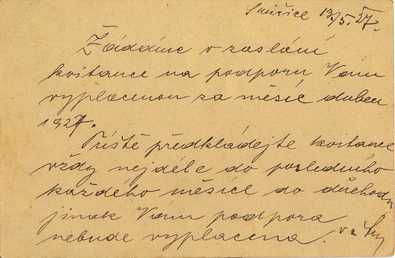 Smiřice 13/5. 27.
Žádáme o zaslání
kvitance na podporu Vám
vyplacenou za měsíc duben
1927.
Příště předkládejte kvitance
vždy nejdéle do posledního
každého měsíce do důchodu
jinak Vám podpora
nebude vyplacena.